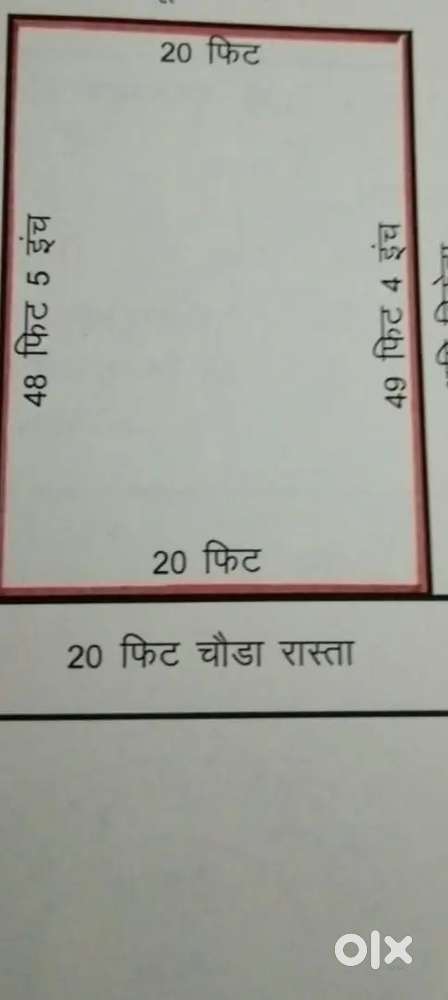 20 फिट
48 फिट 5 इंच
49 फिट 4 इंच
20 फिट
20 फिट चौडा रास्ता
olx